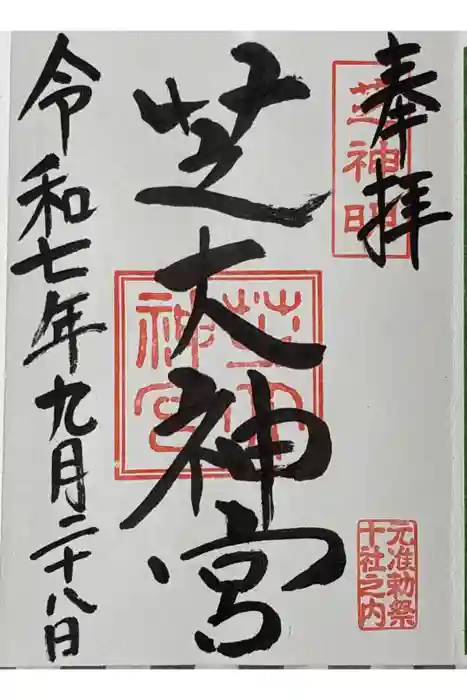 奉拝
芝神明
元准勅祭
十社之内
芝大神宮
芝大
神宮
令和七年九月二十八日